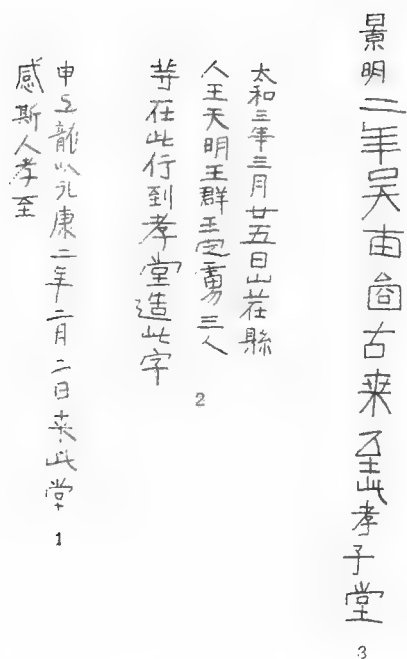 景明二年吴古来至此孝子堂
3
太和三年三月廿五日山茌縣
人王天明王群王定虜三人
等在此行到孝堂造此字
2
申龍以永康二年二月二日来此堂
感斯人孝至
1